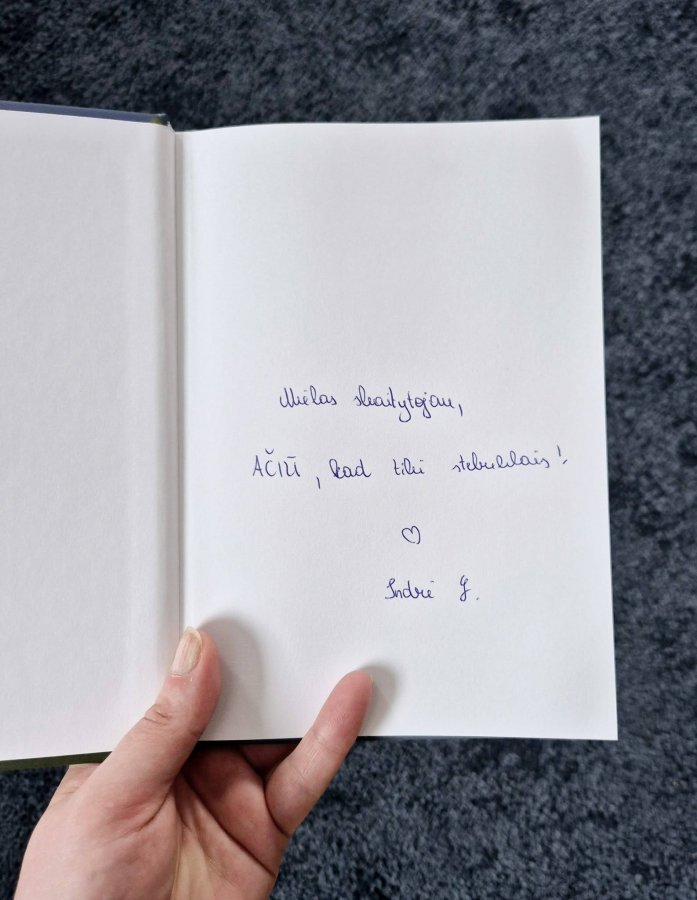 Mielas skaitytojau,
AČIŪ, kad tiki stebuklais!
♡
Indrė G.